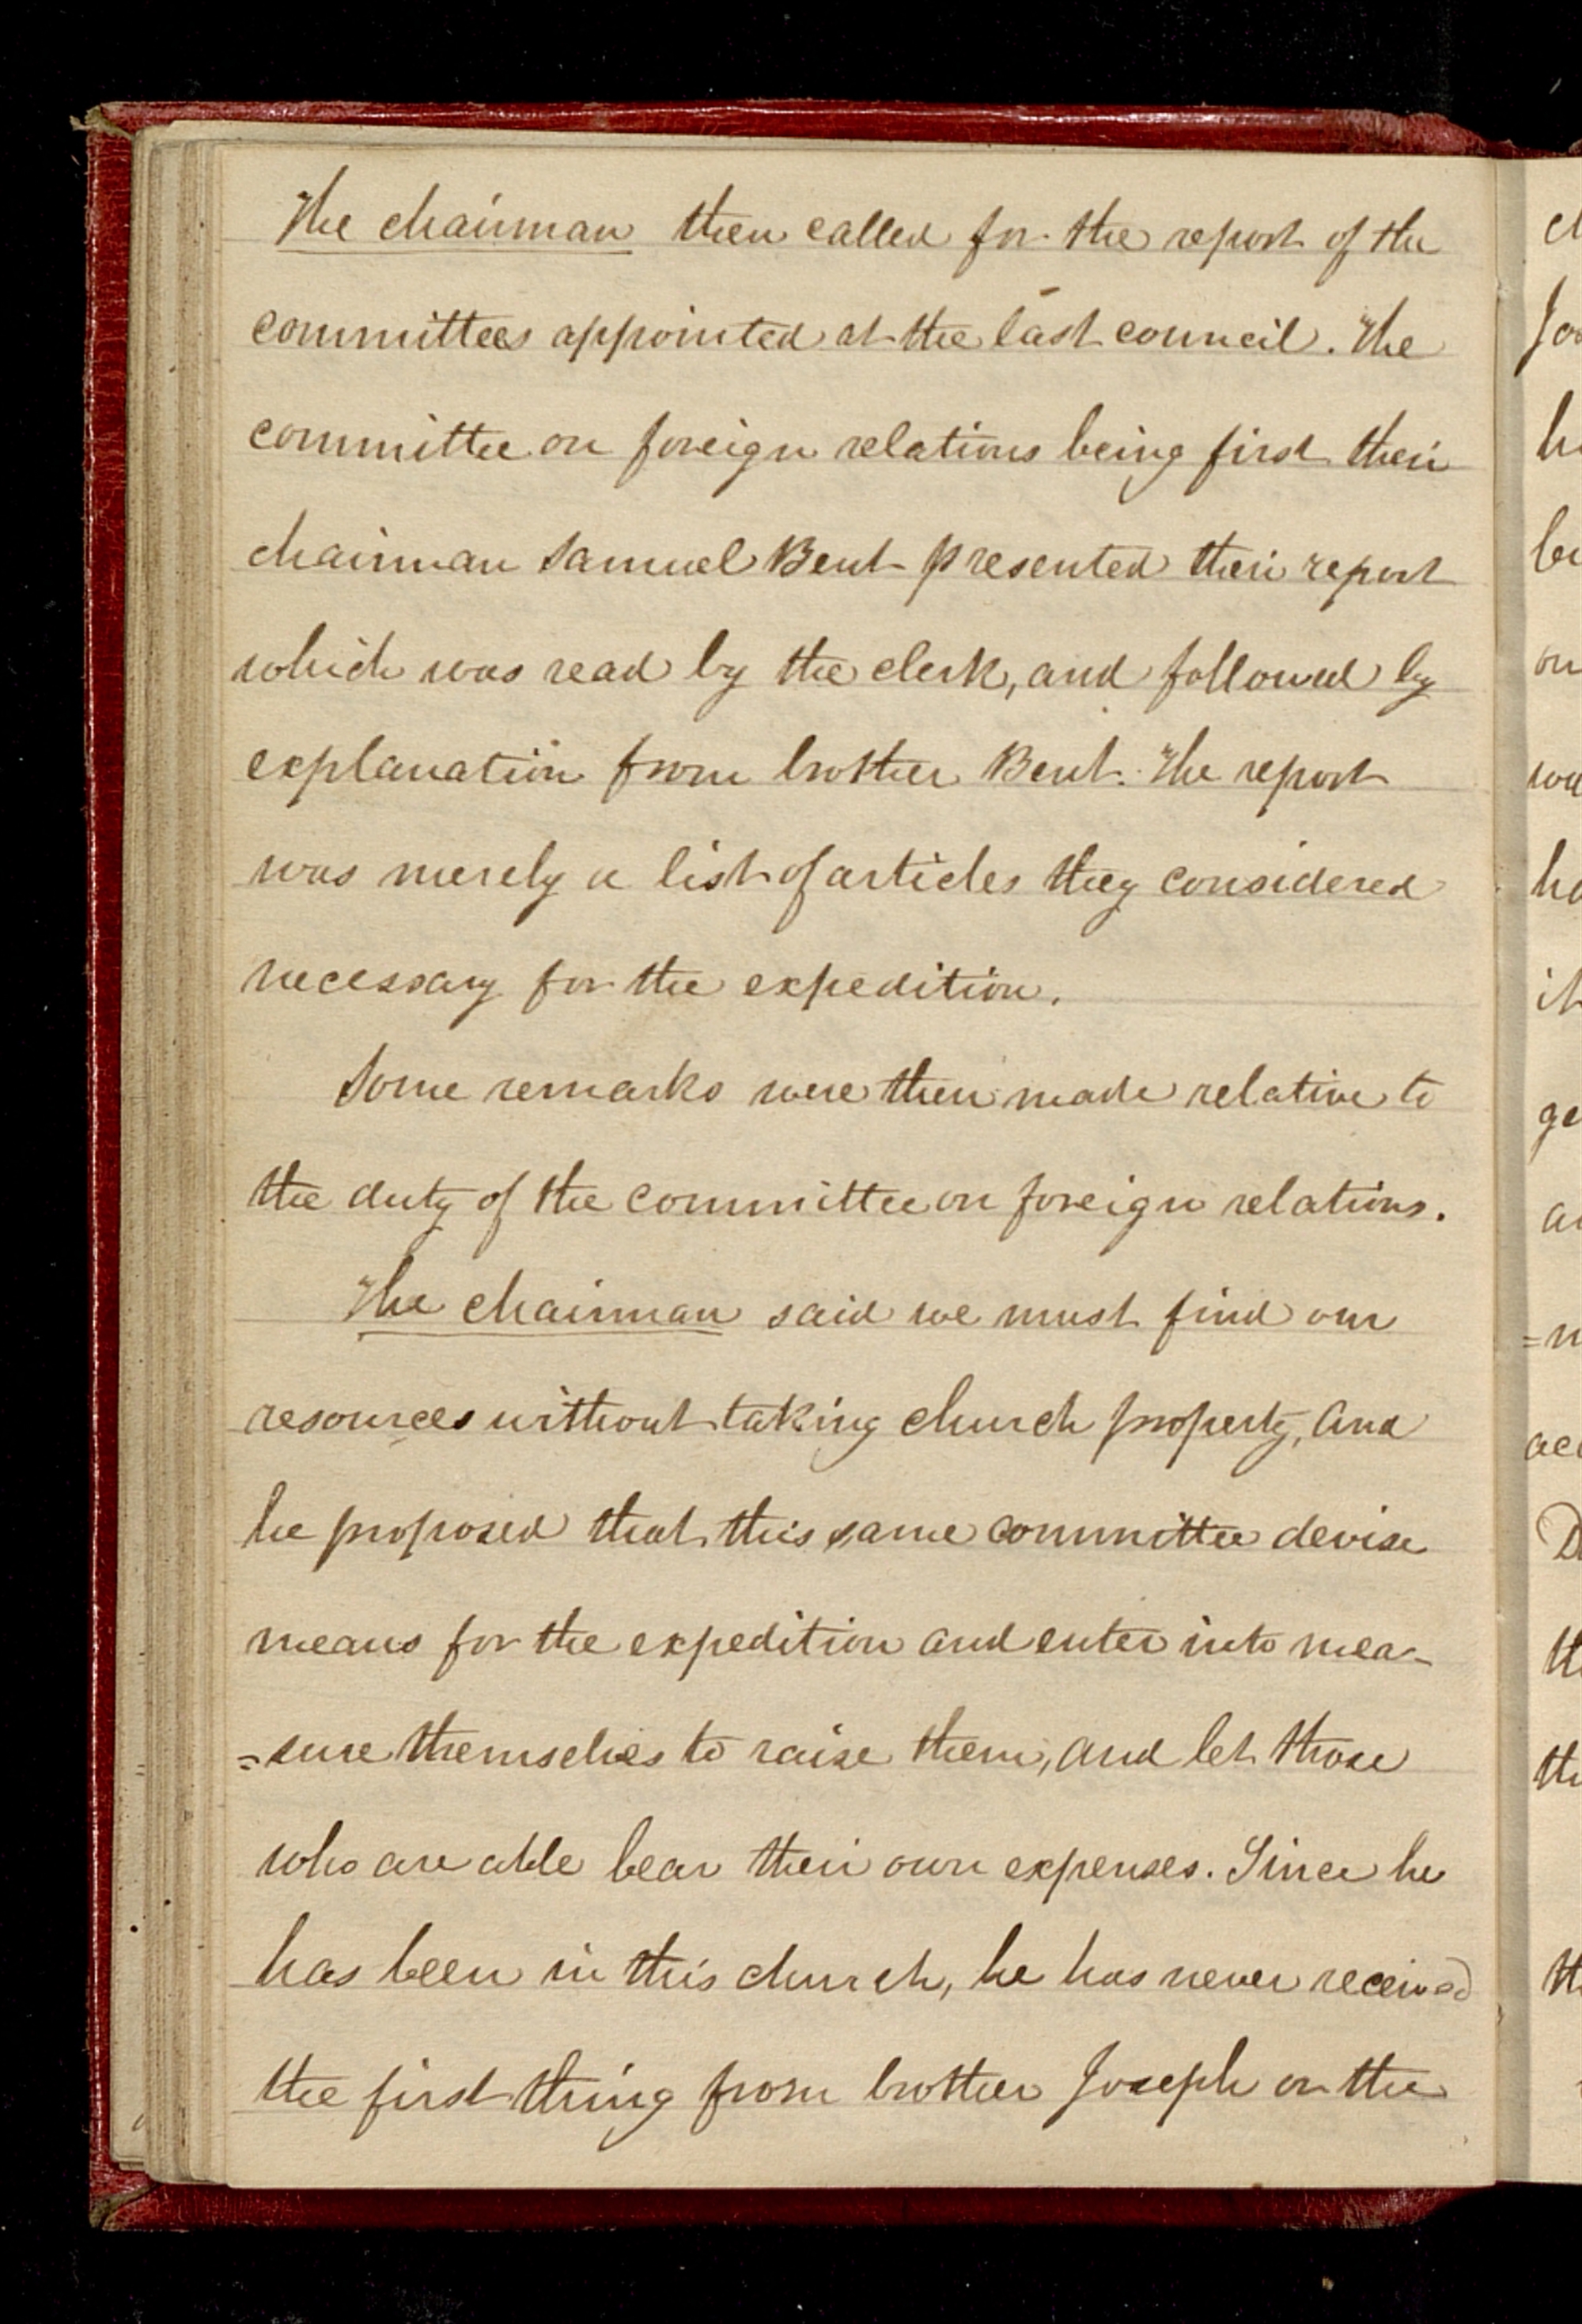 The chairman then called for the report of the
committees appointed at the last council. The
committee on foreign relations being first their
chairman Samuel Bent presented their report
which was read by the clerk, and followed by
explanation from brother Bent. The report
was merely a list of articles they considered
necessary for the expedition.
Some remarks were then made relative to
the duty of the committee on foreign relations.
The chairman said we must find our
resources without taking church property, and
he proposed that this same committee devise
means for the expedition and enter into mea-
=sure themselves to raise them, and let those
who are able bear their own expenses. Since he
has been in this church, he has never received
the first thing from brother Joseph or the